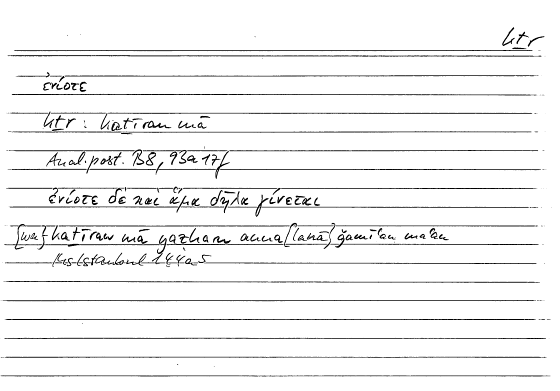 kṯr
ἐνίοτε
kṯr : kaṯīran mā
Anal. post. B8, 93a17f
ἐνίοτε δὲ καὶ ἅμα δῆλα γίνεται
{wa} kaṯīran mā yaẓharu anna {lanā} ǧamīʿan maʿan
Ms Istanbul 144a5